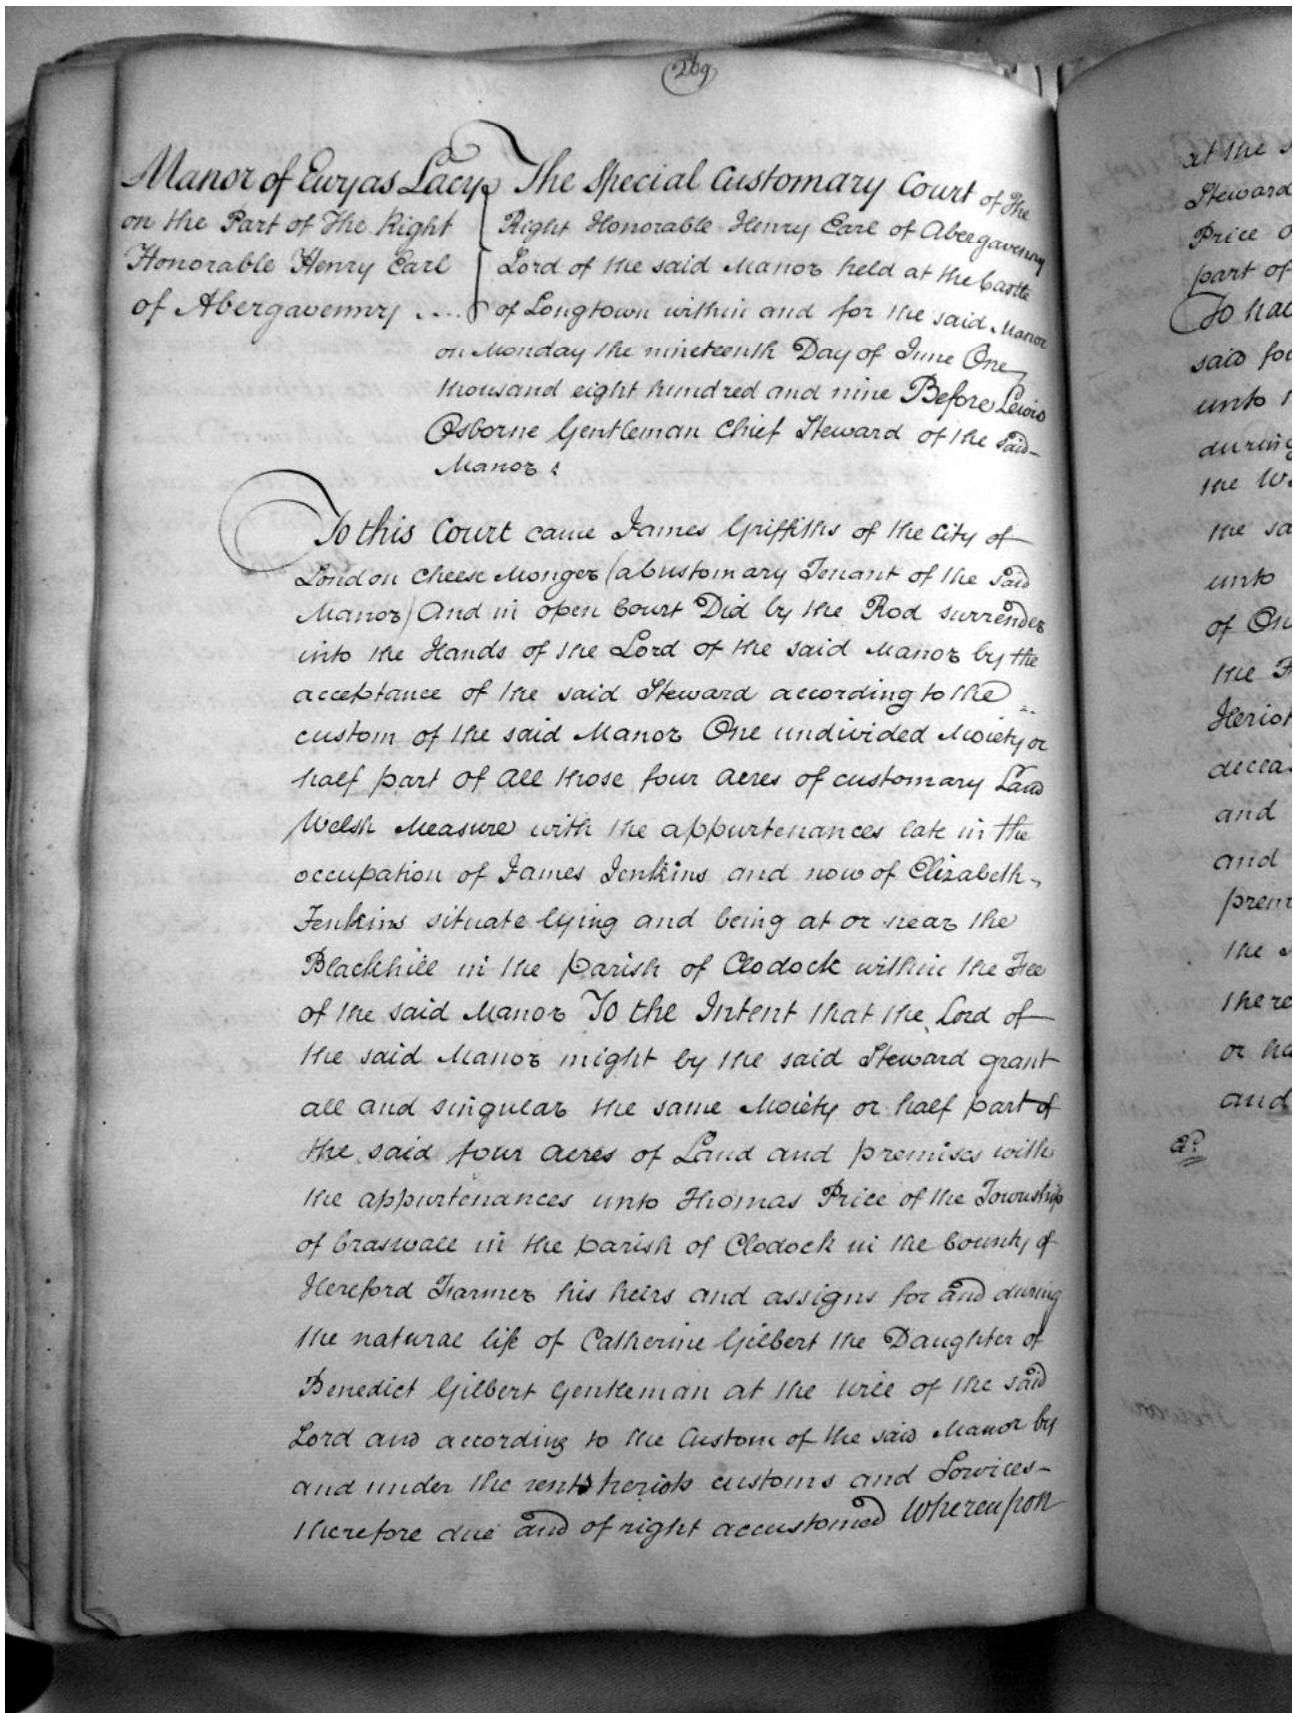 269
Manor of Ewyas Lacy
on the Part of The Right
Honorable Henry Earl
of Abergavenny ....
The Special Customary Court of The
Right Honorable Henry Earl of Abergavenny
Lord of the said Manor held at the Castle
of Longtown within and for the said Manor
on Monday the nineteenth Day of June One
thousand eight hundred and nine Before Lewis
Osborne Gentleman Chief Steward of the said
Manor :
To this Court came James Griffiths of the City of
London Cheese Monger (a Customary Tenant of the said
Manor) And in open Court Did by the Rod surrender
into the Hands of the Lord of the said Manor by the
acceptance of the said Steward according to the
custom of the said Manor One undivided Moiety or
half part of all those four acres of customary Land
Welsh Measure with the appurtenances late in the
occupation of James Jenkins and now of Elizabeth
Jenkins situate lying and being at or near the
Blackhill in the parish of Clodock within the Fee
of the said Manor To the Intent that the Lord of
the said Manor might by the said Steward grant
all and singular the same Moiety or half part of
the said four acres of Land and premises with
the appurtenances unto Thomas Price of the Township
of Craswall in the parish of Clodock in the County of
Hereford Farmer his heirs and assigns for and during
the natural life of Catherine Gilbert the Daughter of
Benedict Gilbert Gentleman at the will of the said
Lord and according to the Custom of the said Manor by
and under the rents heriots customs and Services
therefore due and of right accustomed Whereupon
at the
Steward
Price
part of
To
said
unto
during
the
the
unto
of
the
Heriot
and
and
the
there
or
and